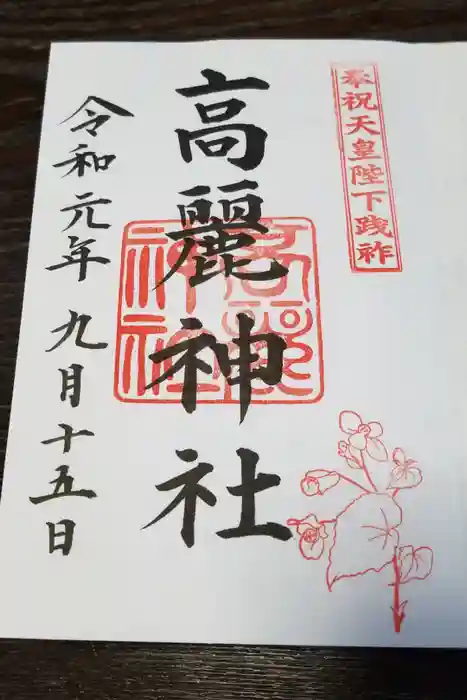 奉祝天皇陛下践祚
高麗神社
令和元年九月十五日
高麗
神社